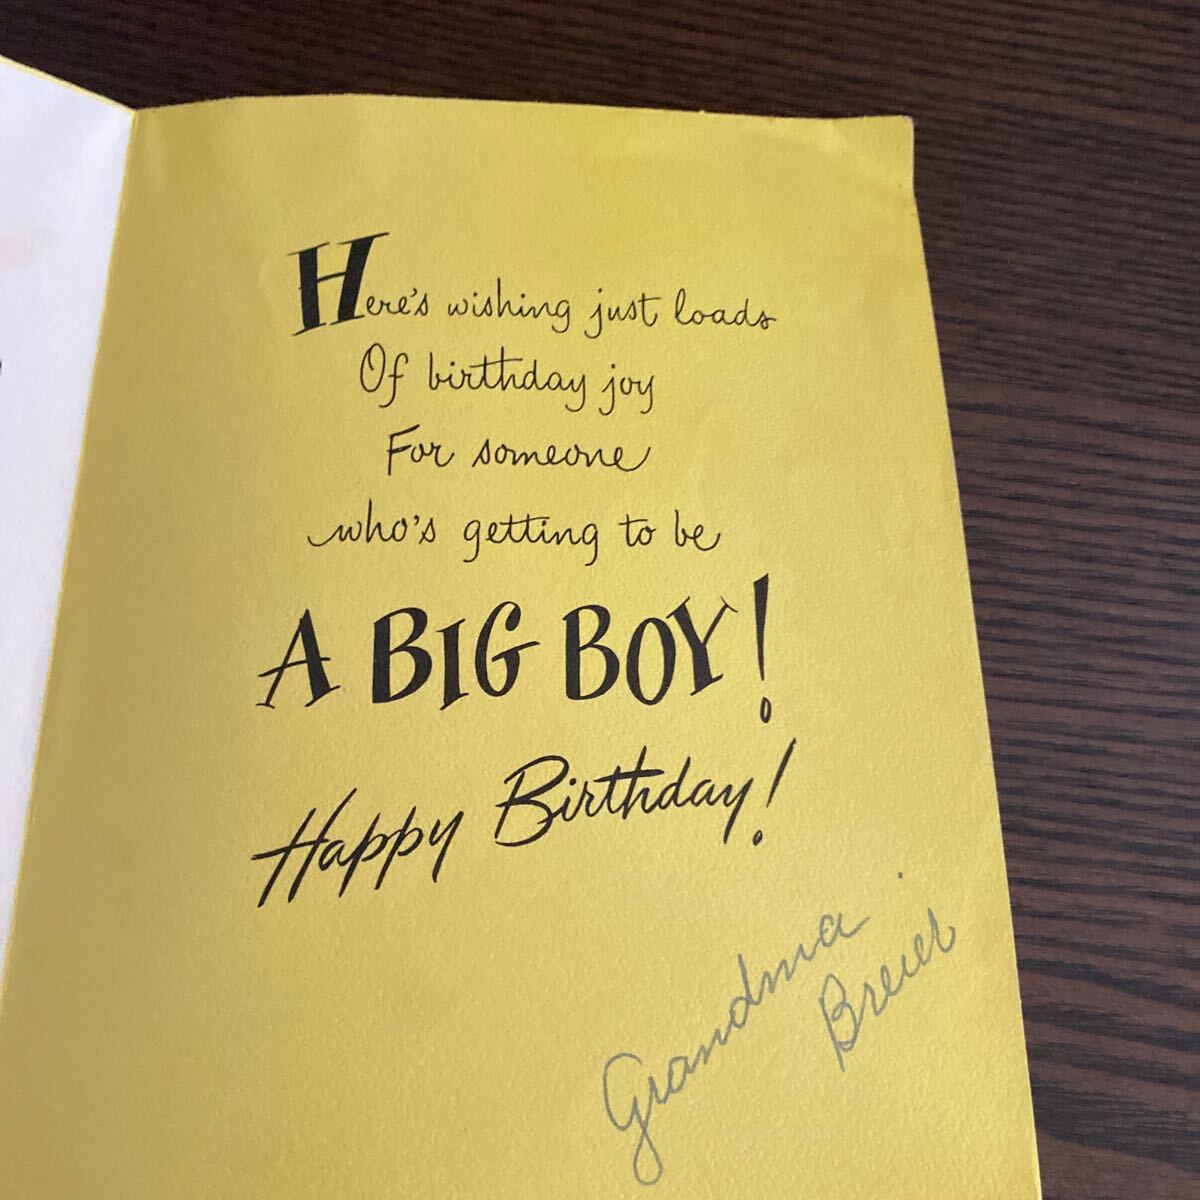 Here's wishing just loads
Of birthday joy
For someone
who's getting to be
A BIG BOY!
Happy Birthday!
Grandma
Breier